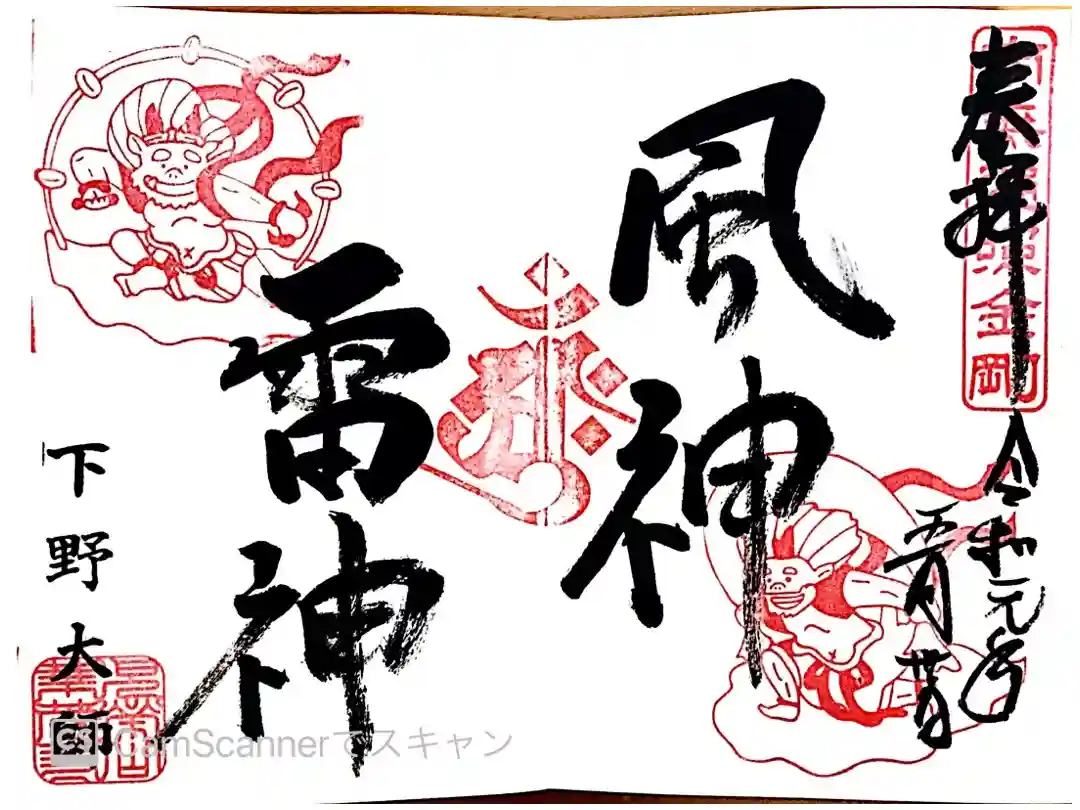 奉拝
南無遍照金剛
令和元年
五月
風神
雷神
下野大師
CS CamScannerでスキャン